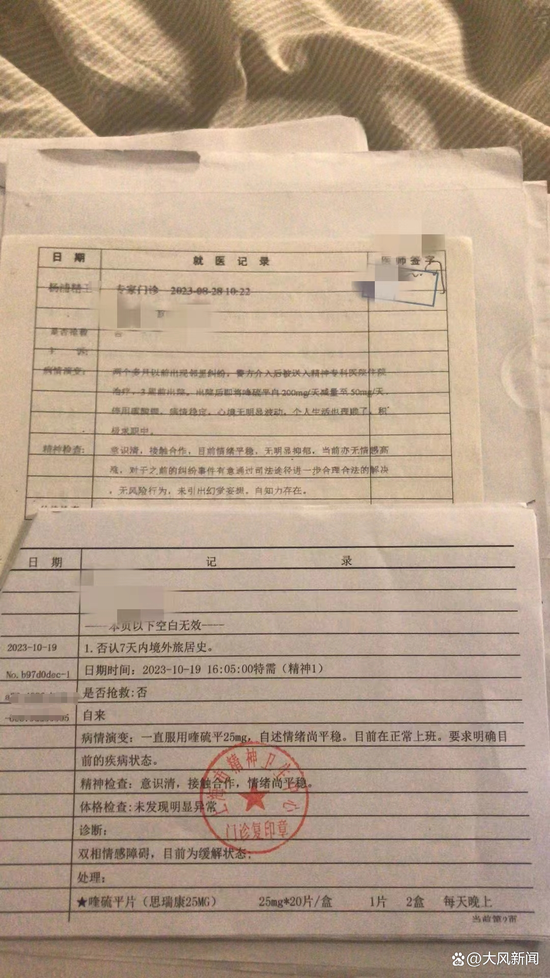 日 期
就 医 记 录
医 师 签 字
专家门诊 2023-08-28 10:22
是否抢救
否
主 诉:
病情演变: 两个多月以前出现邻里纠纷，警方介入后被送入精神专科医院住院
治疗，3周前出院，出院后即将喹硫平由200mg/天减量至50mg/天,
病情稳定，心境无明显波动，个人生活也理想了，积
极求职中。
精神检查: 意识清，接触合作，目前情绪平稳，无明显抑郁，当前亦无情感高
涨，对于之前的纠纷事件有意通过司法途径进一步合理合法的解决
，无风险行为，未引出幻觉妄想，自知力存在。
日 期
记 录
----本页以下空白无效----
2023-10-19
1.否认7天内境外旅居史。
No.b97d0dec-1
日期时间: 2023-10-19 16:05:00特需（精神1）
是否抢救:否
自来
病情演变: 一直服用喹硫平25mg，自述情绪尚平稳。目前在正常上班。要求明确目
前的疾病状态。
精神检查: 意识清，接触合作，情绪尚平稳。
体格检查:未发现明显异常
诊断:
双相情感障碍，目前为缓解状态;
处理:
★喹硫平片（思瑞康25MG） 25mg*20片/盒 1片 2盒 每天晚上
当前第9页
上海市精神卫生中心
门诊复印章
@大风新闻